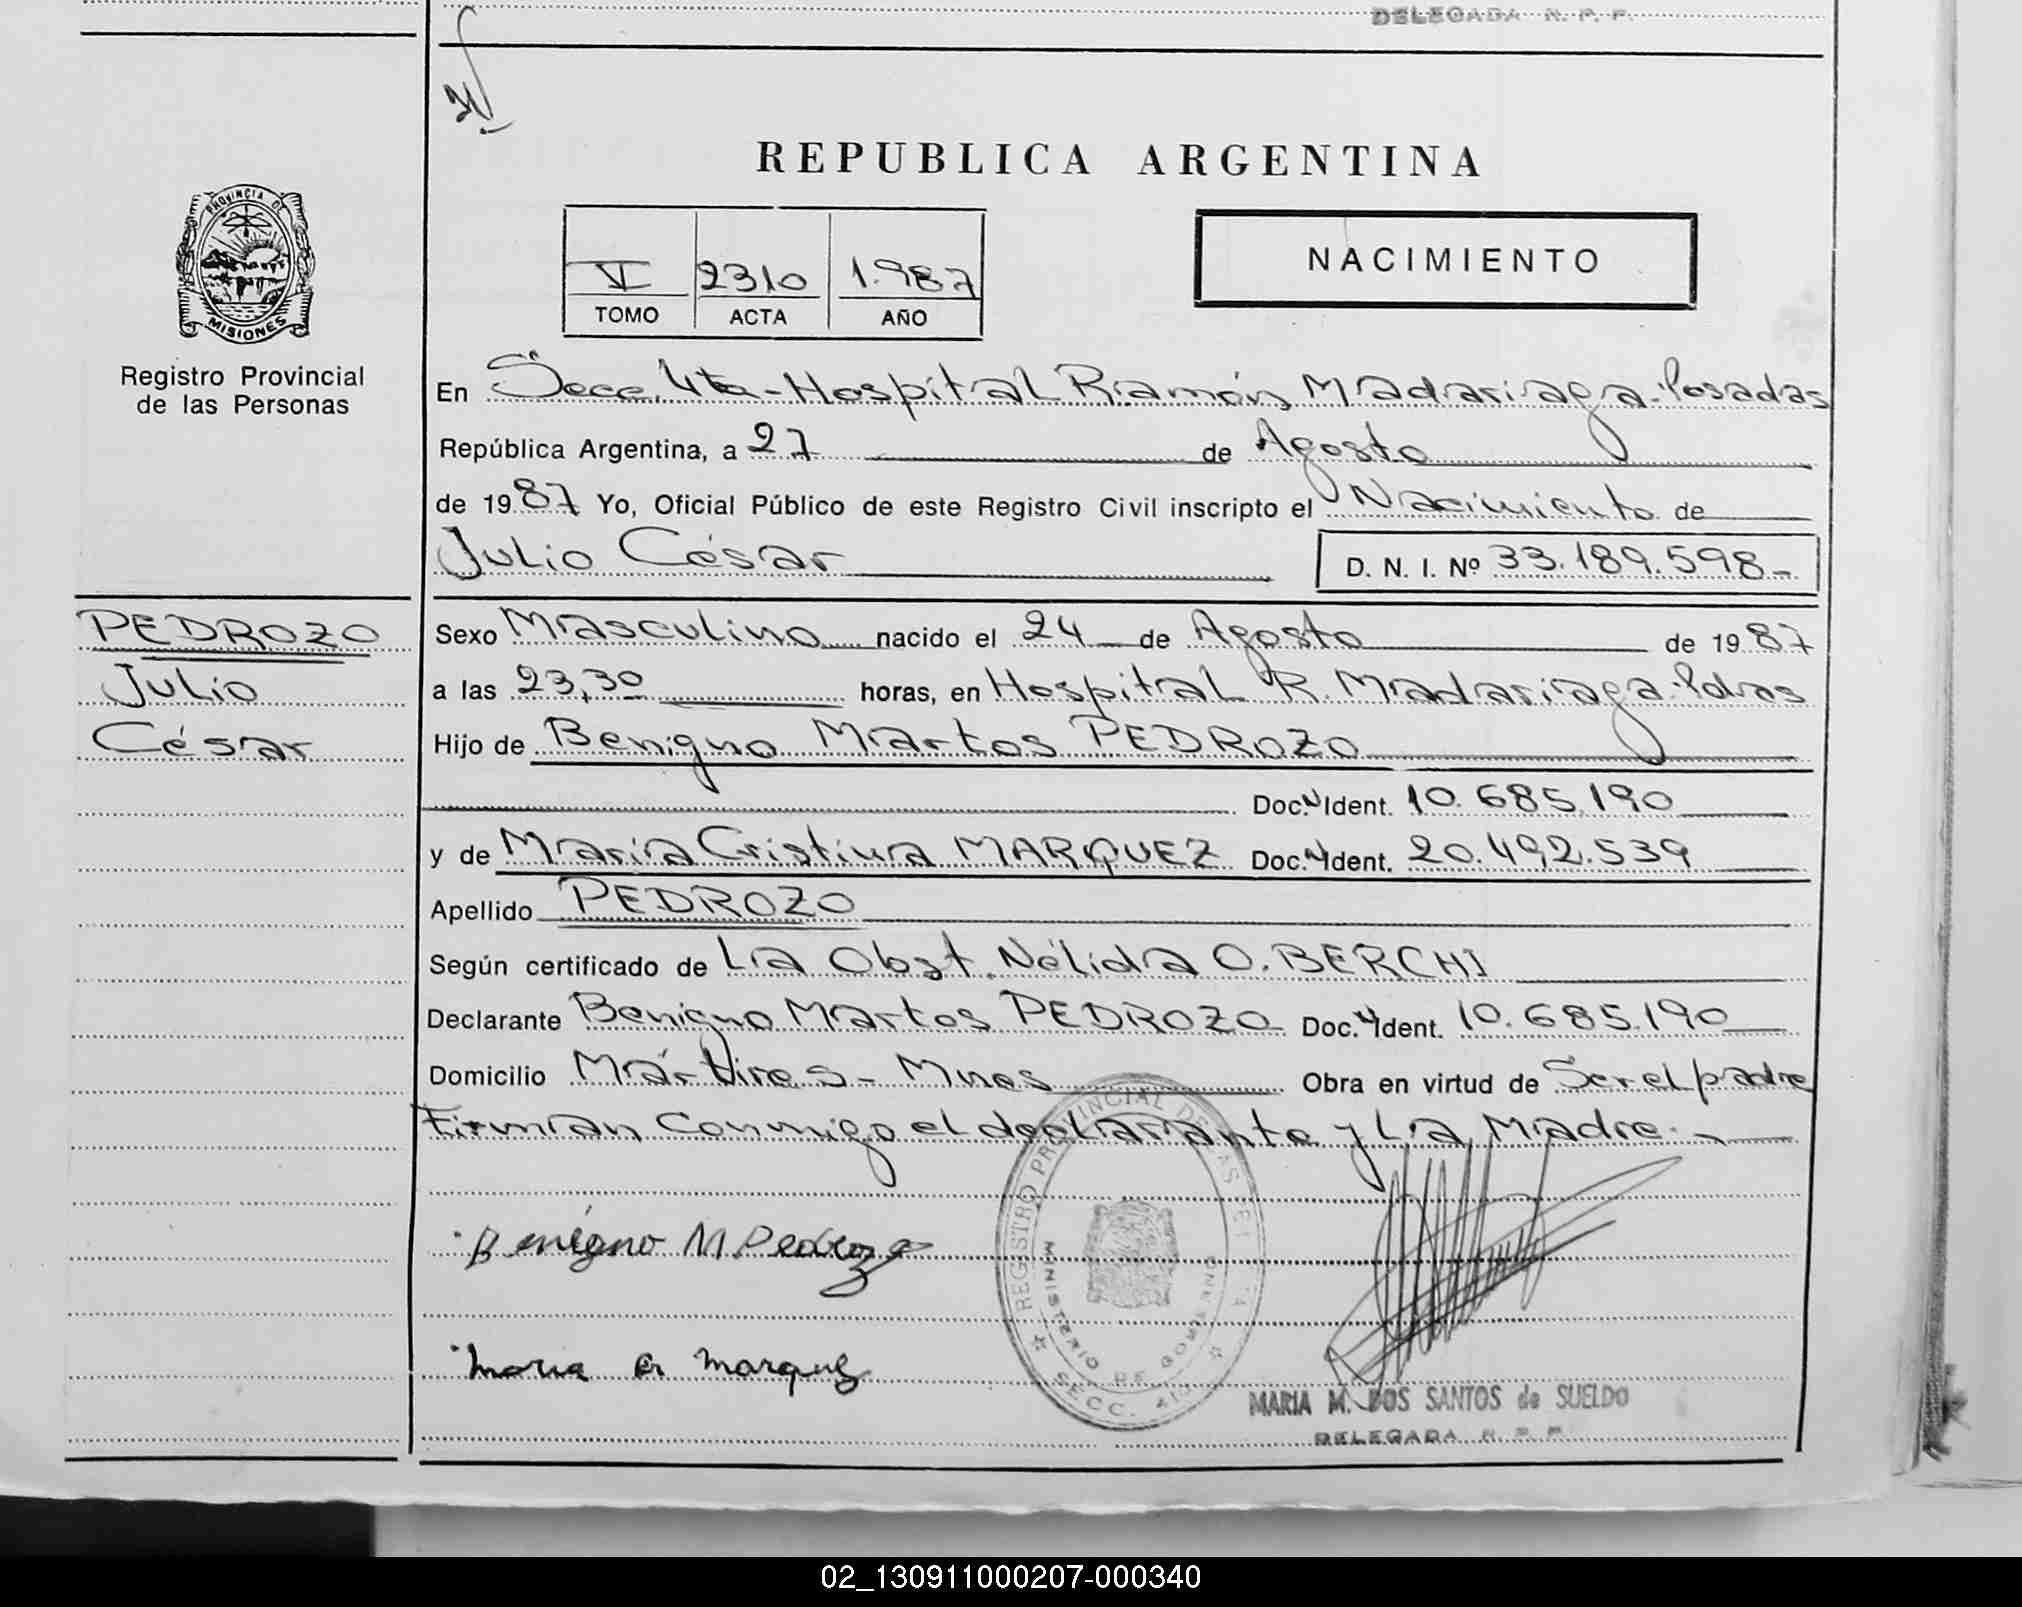 DELEGADA R. P. P.
REPUBLICA ARGENTINA
PROVINCIA DE
MISIONES
Registro Provincial
de las Personas
VI 2310 1.987
TOMO ACTA AÑO
NACIMIENTO
En Secc. 4ta - Hospital Ramón Madariaga - Posadas
República Argentina, a 27 de Agosto
de 1987 Yo, Oficial Público de este Registro Civil inscripto el Nacimiento de
Julio César
D. N. I. Nº 33.189.598-
PEDROZO
Julio
César
Sexo Masculino nacido el 24 de Agosto de 1987
a las 23,30 horas, en Hospital R. Madariaga - Pdas
Hijo de Benigno Martos PEDROZO
Doc. Ident. 10.685.190
y de María Cristina MARQUEZ Doc. Ident. 20.492.539
Apellido PEDROZO
Según certificado de La Obst. Nélida O. BERCHI
Declarante Benigno Martos PEDROZO Doc. Ident. 10.685.190
Domicilio Mártires - Mnes Obra en virtud de Ser el padre
Firman Conmigo el declarante y La Madre.-
Benigno M Pedrozo
Maria Cr Marquez
REGISTRO PROVINCIAL DE LAS
MINISTERIO DE GOBIERNO
SECC. 4ta
MARIA M. DOS SANTOS de SUELDO
DELEGADA R. P. P.
02_130911000207-000340